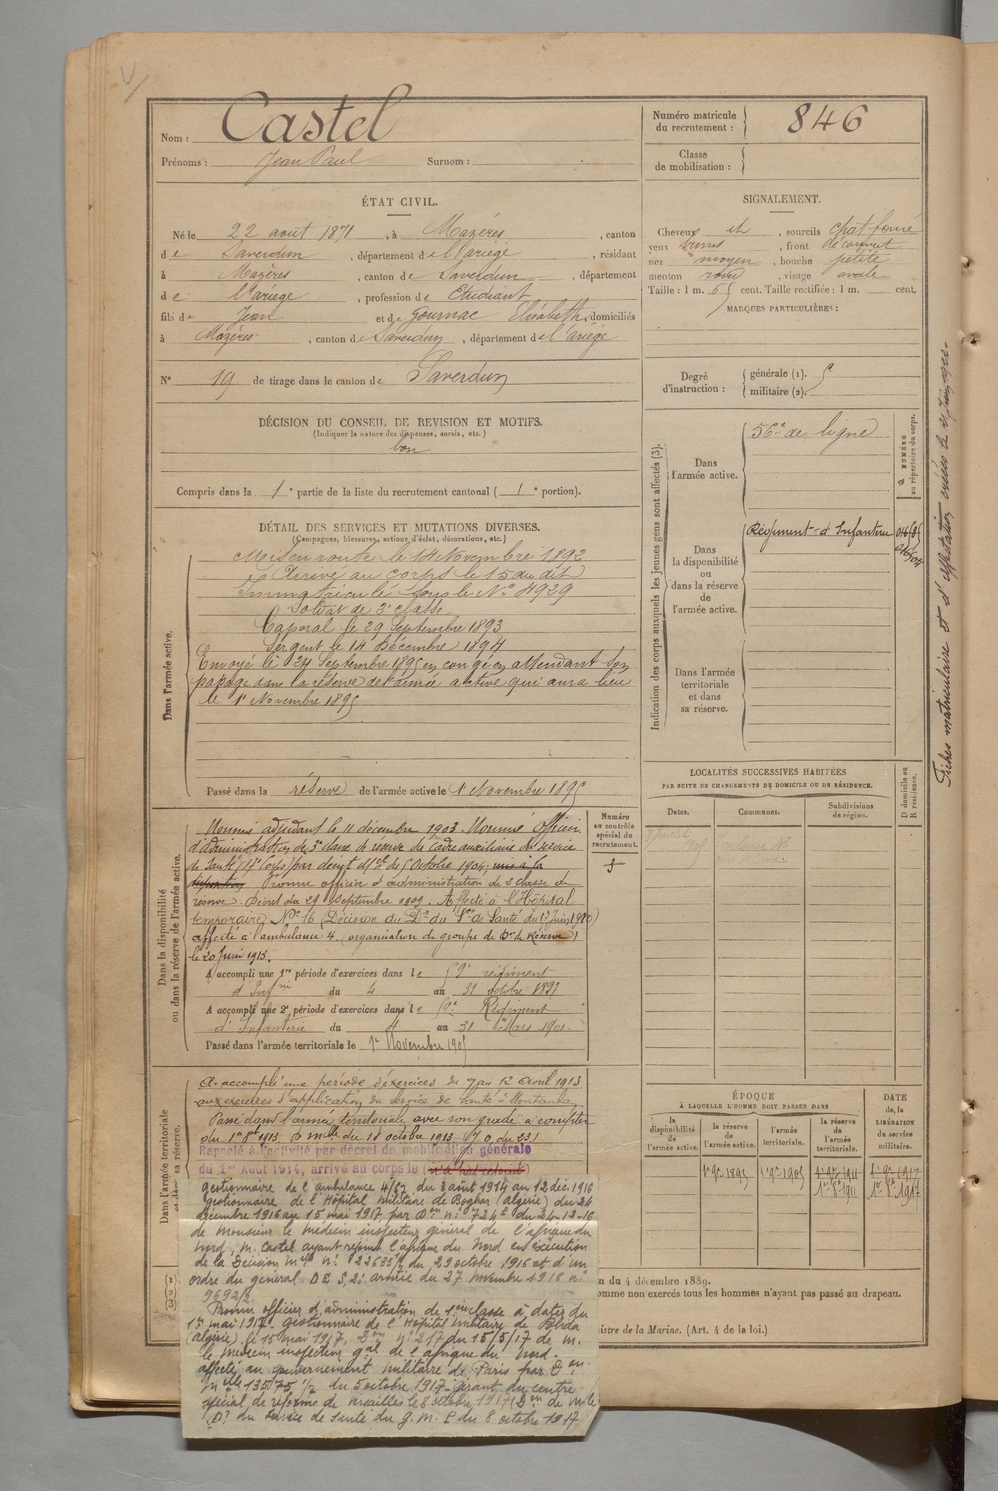 Nom : Castel
Prénoms : Jean Paul Surnom :
Numéro matricule
du recrutement : 846
Classe
de mobilisation :
ÉTAT CIVIL.
Né le 22 aout 1871, à Mazéres, canton
de Saverdun, département de l'ariége, résidant
à Mazéres, canton de Saverdun, département
de l'ariege, profession de Etudiant
fils de Jean et de Gournac Elisabeth domiciliés
à Mazéres, canton de Saverdun, département de l'ariége
N° 19 de tirage dans le canton de Saverdun
SIGNALEMENT.
Cheveux et, sourcils chat. foncé
yeux bruns, front découvert
nez moyen, bouche petite
menton rond, visage ovale
Taille : 1 m. 65 cent. Taille rectifiée : 1 m. cent.
MARQUES PARTICULIÈRES :
Degré
d'instruction :
générale (1).
militaire (2).
DÉCISION DU CONSEIL DE REVISION ET MOTIFS.
(Indiquer la nature des dispenses, sursis, etc.)
bon
Compris dans la 1e partie de la liste du recrutement cantonal (1e portion).
DÉTAIL DES SERVICES ET MUTATIONS DIVERSES.
(Campagnes, blessures, actions d'éclat, décorations, etc.)
Dans l'armée active.
Mis en route le 14 Novembre 1892
Arrivé au corps le 15 du dit
Immatriculé sous le N° 4929
Soldat de 2e classe
Caporal le 29 Septembre 1893
Sergent le 14 Décembre 1894
Envoyé le 24 Septembre 1895 en congé en attendant son
passage dans la réserve de l'armée active qui aura lieu
le 1r Novembre 1895
Passé dans la réserve de l'armée active le 1 Novembre 1895
Indication des corps auxquels les jeunes gens sont affectés (3).
Dans
l'armée active.
56e de ligne
NUMÉRO
au répertoire du corps.
Dans
la disponibilité
ou
dans la réserve
de
l'armée active.
Régiment d'Infanterie
Dans l'armée
territoriale
et dans
sa réserve.
LOCALITÉS SUCCESSIVES HABITÉES
PAR SUITE DE CHANGEMENTS DE DOMICILE OU DE RÉSIDENCE.
Dates. Communes. Subdivisions
de région.
D domicile ou
R résidence.
Dans la disponibilité
ou dans la réserve de l'armée active.
Numéro
au contrôle
spécial du
recrutement.
Nommé adjudant le 11 décembre 1903. Nommé officier
d'administration de 3e classe de réserve du cadre auxiliaire du service
de Santé (17e Corps) par décret du 5 Octobre 1904,
Promu officier d'administration de 2e classe de
réserve. Décret du 29 septembre 1909. Affecté à l'Hôpital
temporaire N° 16 (Décision du Dr du Sce de Santé du 17 Juin 1910)
affecté à l'ambulance 4. (organisation du groupe de Don de Réserve)
le 20 Juin 1913.
A accompli une 1re période d'exercices dans le 59e régiment
d'Infrie du 4 au 31 octobre 1897
A accompli une 2e période d'exercices dans le 59e Régiment
d'Infanterie du 4 au 31 Mars 1901
Passé dans l'armée territoriale le 1er Novembre 1905
Dans l'armée territoriale
sa réserve.
A accompli une période d'exercices du 7 au 12 avril 1913
aux exercices d'application du service de santé à Montauban
Passé dans l'armée territoriale avec son grade à compter
du 1er 8bre 1913 D mlle du 18 octobre 1913
Rappelé à l'activité par décret de mobilisation générale
du 1er Aout 1914, arrivé au corps le
gestionnaire de l'ambulance 4/67 du 3 août 1914 au 12 déc. 1916
gestionnaire de l'Hôpital militaire de Boghar (algérie) du 24
décembre 1916 au 15 mai 1917 par Don n° 7242 du 24-12-16
de monsieur le médecin inspecteur général de l'afrique du
Nord, M. Castel ayant rejoint l'afrique du Nord en exécution
de la Décision mlle n° 22683 1/2 du 29 octobre 1916 et d'un
ordre du général DE S, 2e armée du 27 novembre 1916 n°
9692/2
Promu officier d'administration de 1ère classe à dater du
1er mai 1917. gestionnaire de l'Hôpital militaire de Blida
(algérie) le 15 mai 1917, Don n° 217 du 15/5/17 de m.
le médecin inspecteur gal de l'afrique du Nord.
affecté au gouvernement militaire de Paris par Don
mlle 13575 1/2 du 5 octobre 1917 gérant du centre
spécial de réforme de Versailles le 8 octobre 1917 (Don de mr le
Dr du service de santé du G. M. P. du 8 octobre 1917
ÉPOQUE
À LAQUELLE L'HOMME DOIT PASSER DANS
la
disponibilité
de
l'armée active.
la réserve
de
l'armée active.
l'armée
territoriale.
la réserve
de l'armée
territoriale.
DATE
de la
LIBÉRATION
du service
militaire.
1r 9re 1895 1r 9re 1905 1r 9re 1911 1r 9re 1917
n du 4 décembre 1889.
omme non exercés tous les hommes n'ayant pas passé au drapeau.
istre de la Marine. (Art. 4 de la loi.)